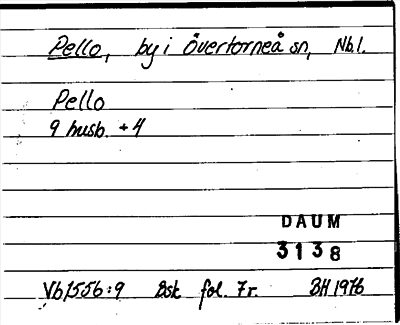 Pello, by i Övertorneå sn, Nb.l.
Pello
9 husb. + 4
DAUM
3138
Vb 1556:9 Bsk fol. 7r. BH 1976